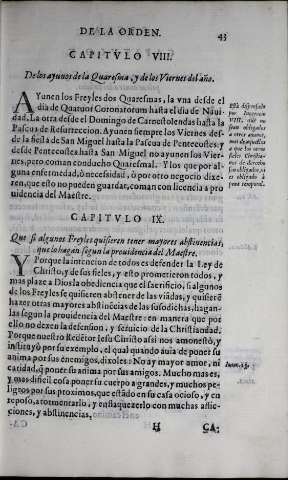 DE LA ORDEN.
43
CAPITVLO VIII.
De los ayunos de la Quaresma, y de los Viernes del año.
AYunen los Freyles dos Quaresmas, la vna desde el
dia de Quatuor Coronatorum hasta el dia de Naui-
dad. La otra desde el Domingo de Carnestolendas hasta la
Pascua de Resurreccion. Ayunen siempre los Viernes des-
de la fiesta de San Miguel hasta la Pascua de Pentecostes, y
desde Pentecostes hasta San Miguel no ayunen los Vier-
nes, pero coman conducho Quaresmal. Y los que por al-
guna enfermedad, ò necesidad, ò por otro negocio dixe-
ren, que esto no pueden guardar, coman con licencia a pro
uidencia del Maestre.
Està dispensado
por Inocencio
VIII. que no
sean obligados
a otros ayunos,
mas de aquellos
a que los otros
fieles Christia-
nos de derecho
son obligados, ni
es obligado à
pena temporal.
CAPITVLO IX.
Que si algunos Freyles quisieren tener mayores abstinencias,
que lo hagan segun la prouidencia del Maestre.
Y Porque la intencion de todos es defender la Ley de
Christo, y de sus fieles, y esto prometieron todos, y
mas plaze a Dios la obediencia que el sacrificio, si algunos
de los Freyles se quisieren abstener de las viãdas, y quisierẽ
hazer otras mayores abstinẽcias de las susodichas, hagan-
las segun la prouidencia del Maestre: en manera que por
ello no dexen la defension, y seruicio de la Christiandad.
Porque nuestro Redẽtor Iesu Christo assi nos amonestò, y
instruyò por su exemplo, el qual quando auia de poner su
anima por sus enemigos, dixoles: No ay mayor amor, ni
caridad, q̃ poner su anima por sus amigos. Mucho mas es,
y mas dificil cosa poner su cuerpo a grandes, y muchos pe-
ligros por sus proximos, que estãdo en su casa ocioso, y en
reposo, atormentarlo, y enflaquezerlo con muchas aflic-
ciones, y abstinencias.
Ioan. 15.
H
CA-